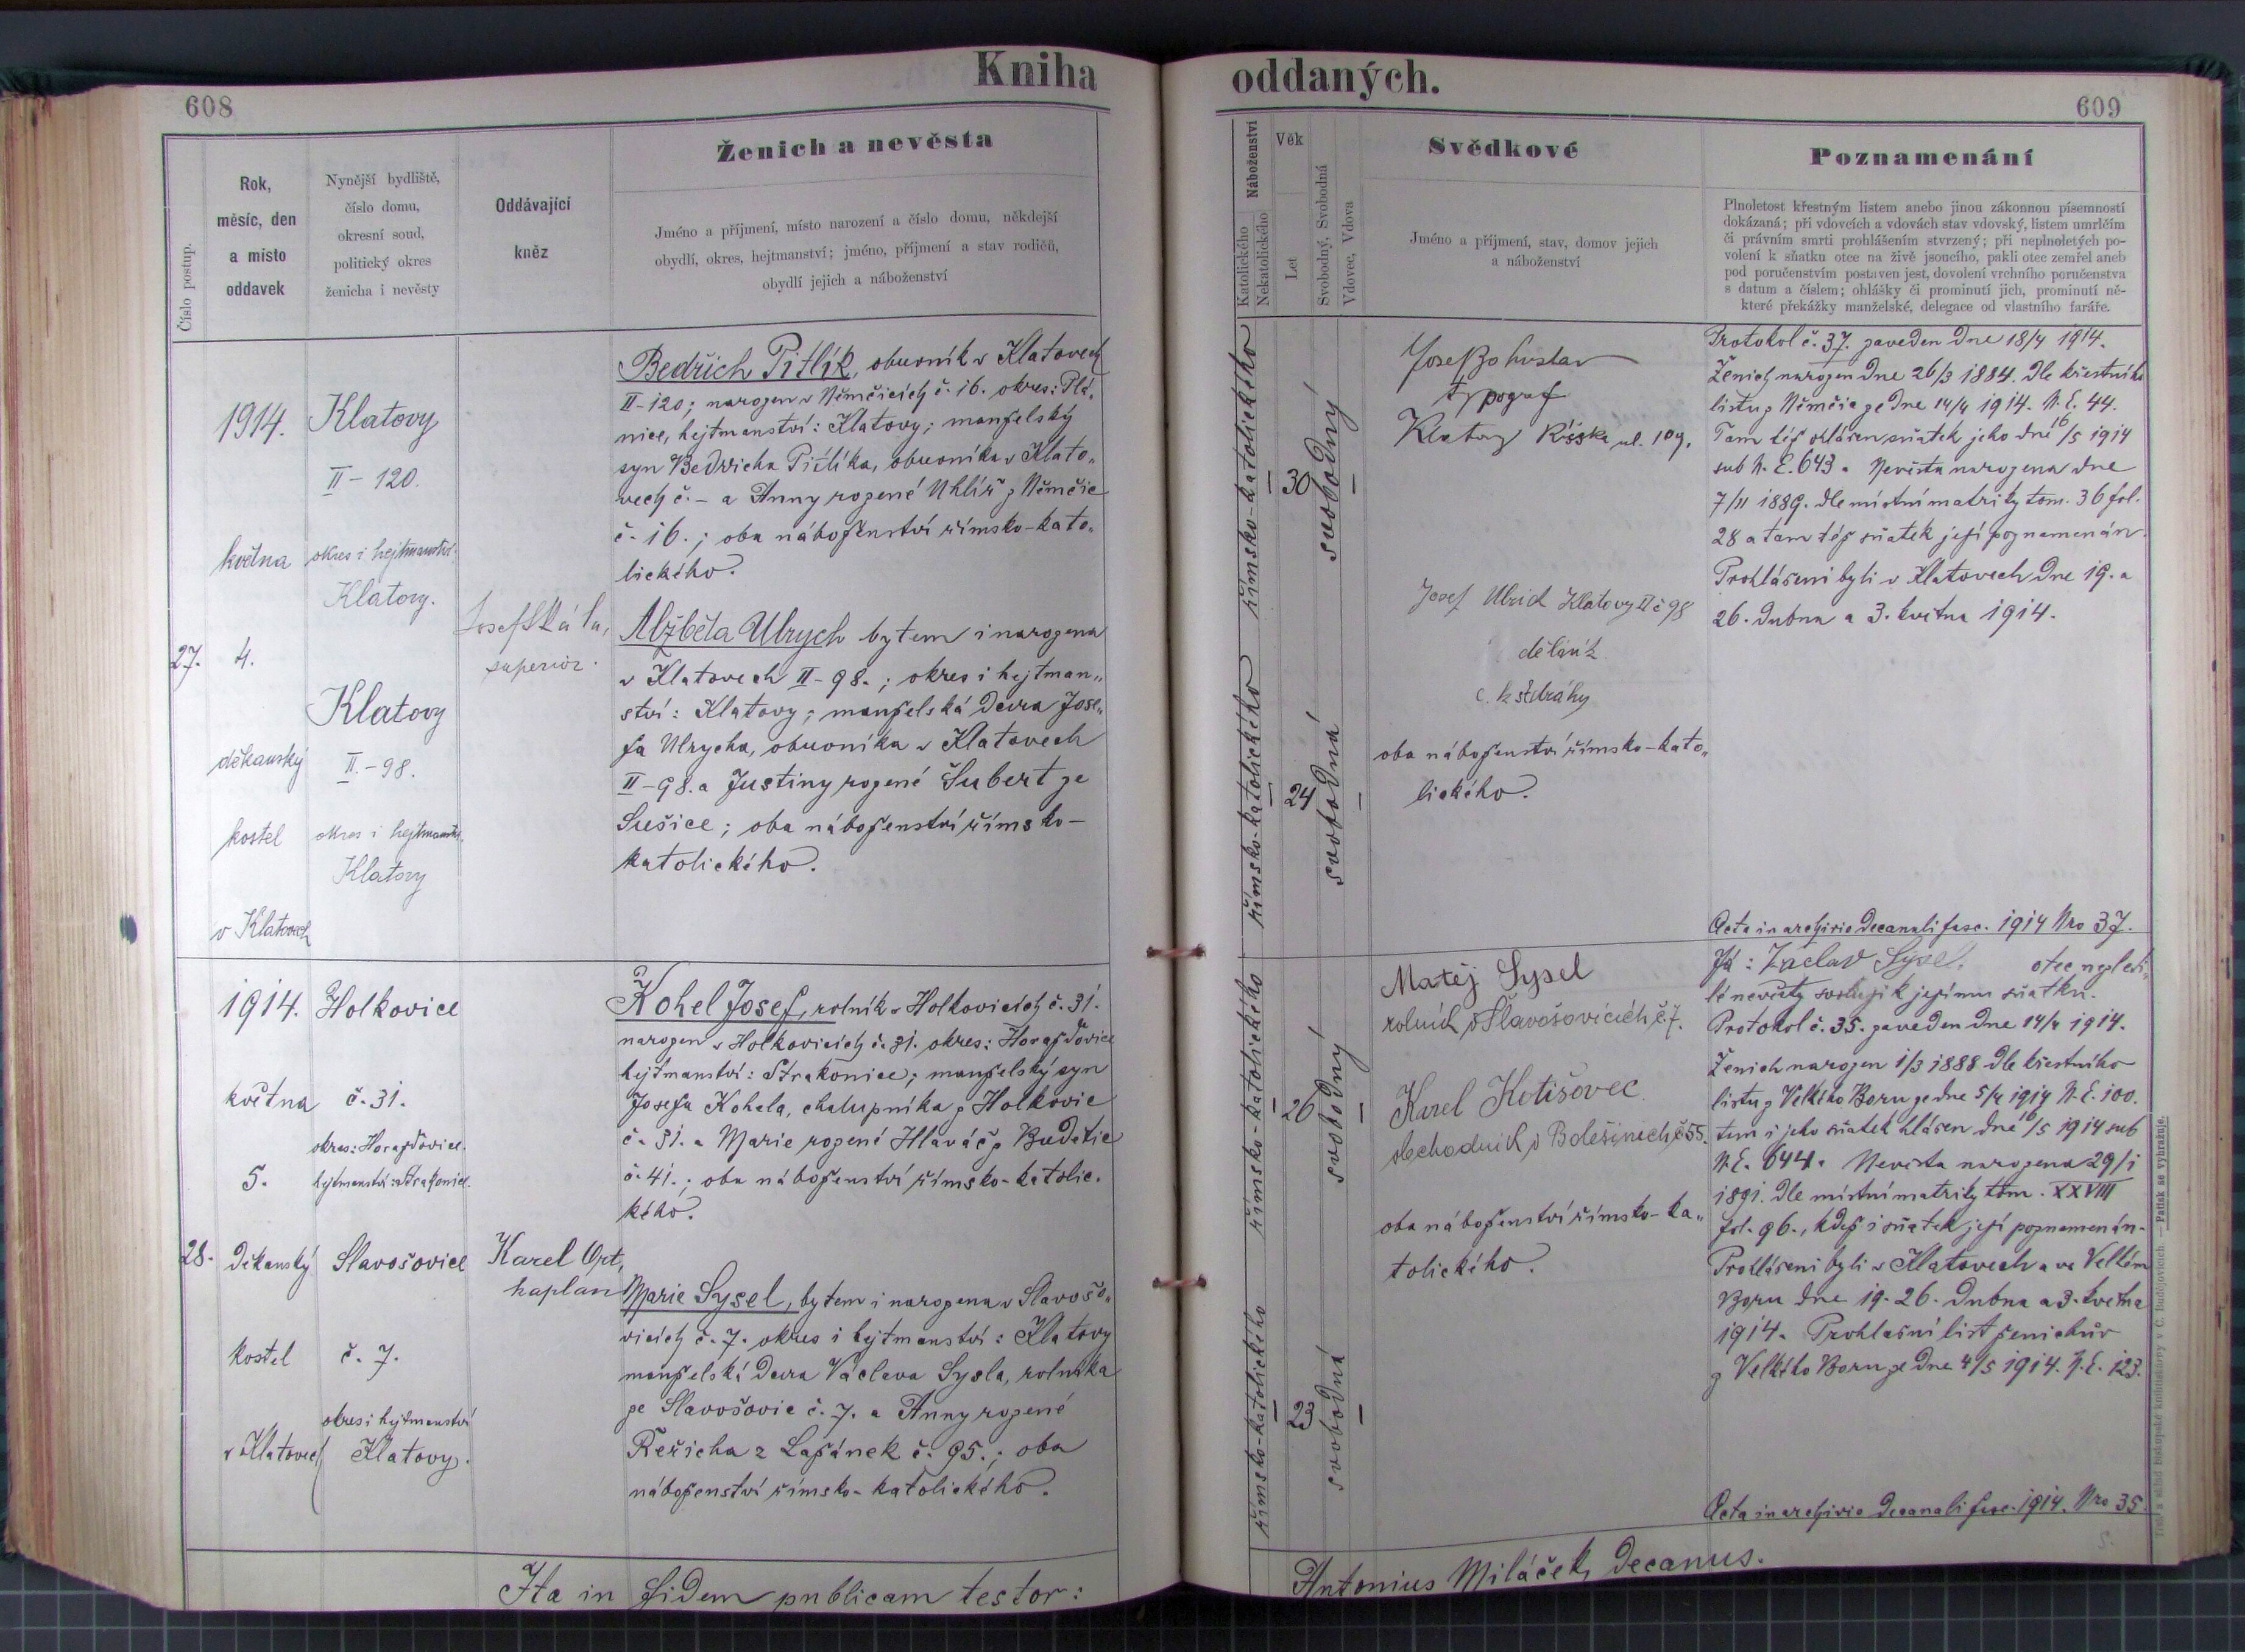 Kniha oddaných.
608
609
Číslo postup.
Rok,
měsíc, den
a místo
oddavek
Nynější bydliště,
číslo domu,
okresní soud,
politický okres
ženicha i nevěsty
Oddávající
kněz
Ženich a nevěsta
Jméno a příjmení, místo narození a číslo domu, někdejší
obydlí, okres, hejtmanství; jméno, příjmení a stav rodičů,
obydlí jejich a náboženství
Náboženství
Katolického
Nekatolického
Věk
Let
Svobodný, Svobodná
Vdovec, Vdova
Svědkové
Jméno a příjmení, stav, domov jejich
a náboženství
Poznamenání
Plnoletost křestným listem anebo jinou zákonnou písemností
dokázaná; při vdovcích a vdovách stav vdovský, listem umrlčím
či právním smrti prohlášením stvrzený; při neplnoletých po-
volení k sňatku otce na živě jsoucího, pakli otec zemřel aneb
pod poručenstvím postaven jest, dovolení vrchního poručenstva
s datum a číslem; ohlášky či prominutí jich, prominutí ně-
které překážky manželské, delegace od vlastního faráře.
27.
1914.
května
4.
děkanský
kostel
v Klatovech
Klatovy
II – 120.
okres i hejtmanství:
Klatovy.
Klatovy
II. – 98.
okres i hejtmanství
Klatovy
Josef Skála,
superior.
Bedřich Pitlík, obuvník v Klatovech
II–120; narozen v Němčicích č. 16. okres: Plá-
nice, hejtmanství: Klatovy; manželský
syn Bedřicha Pitlíka, obuvníka v Klato-
vech č. – a Anny rozené Uhlíř z Němčic
č. 16.; oba náboženství římsko-kato-
lického.
Alžběta Ulrych bytem i narozena
v Klatovech II–98.; okres i hejtman-
ství: Klatovy; manželská dcera Jose-
fa Ulrycha, obuvníka v Klatovech
II–98. a Justiny rozené Šubert ze
Sušice; oba náboženství římsko-
katolického.
římsko-katolického
30
svobodný
římsko-katolického
24
svobodná
Josef Bohuslav
typograf
Klatovy Říšská ul. 109.
Josef Ulrich Klatovy II č 98
dělník
c. k. st. dráhy
oba náboženství římsko-kato-
lického.
Protokol č. 37. zaveden dne 18/4 1914.
Ženich narozen dne 26/3 1884. dle křestního
listu z Němčic ze dne 14/4 1914. N. E. 44.
Tam též ohlášen sňatek jeho dne 6/5 1914
sub N. E. 643. Nevěsta narozena dne
7/11 1889. dle místní matriky tom. 36 fol.
28 a tam též sňatek její poznamenán.
Prohlášeni byli v Klatovech dne 19. a
26. dubna a 3. května 1914.
Acta in archivio decanali fasc. 1914 Nro 37.
28.
1914.
května
5.
děkanský
kostel
v Klatovech
Holkovice
č. 31.
okres: Horažďovice.
hejtmanství: Strakonice.
Slavošovice
č. 7.
okres i hejtmanství
Klatovy.
Karel Opt,
kaplan
Kohel Josef, rolník v Holkovicích č. 31.
narozen v Holkovicích č. 31. okres: Horažďovice
hejtmanství: Strakonice; manželský syn
Josefa Kohela, chalupníka z Holkovic
č. 31. a Marie rozené Hlaváč z Budětic
č. 41.; oba náboženství římsko-katolic-
kého.
Marie Sysel, bytem i narozena v Slavošo-
vicích č. 7. okres i hejtmanství: Klatovy
manželská dcera Václava Sysla, rolníka
ze Slavošovic č. 7. a Anny rozené
Řeřicha z Lažánek č. 95.; oba
náboženství římsko-katolického.
římsko-katolického
26
svobodný
římsko-katolického
23
svobodná
Matěj Sysel
rolník v Slavošovicích č. 7.
Karel Kotišovec
obchodník v Bolešinech č 55.
oba náboženství římsko-ka-
tolického.
Já: Václav Sysel. otec nezleti-
lé nevěsty svoluji k jejímu sňatku.
Protokol č. 35. zaveden dne 14/4 1914.
Ženich narozen 1/3 1888 dle křestního
listu z Velkého Boru ze dne 5/4 1914 N. E. 100.
tam i jeho sňatek hlášen dne 6/5 1914 sub
N. E. 644. Nevěsta narozena 29/1
1891. dle místní matriky tom. XXVIII
fol. 96., kdež i sňatek její poznamenán.
Prohlášeni byli v Klatovech a ve Velkém
Boru dne 19. 26. dubna a 3. května
1914. Prohlašní list ženichův
z Velkého Boru ze dne 4/5 1914. N. E. 123.
Acta in archivio decanali fasc. 1914. Nro 35.
Ita in fidem publicam testor:
Antonius Miláček, decanus.
Tisk a sklad biskupské knihtiskárny v Č. Budějovicích. — Patisk se vyhražuje.